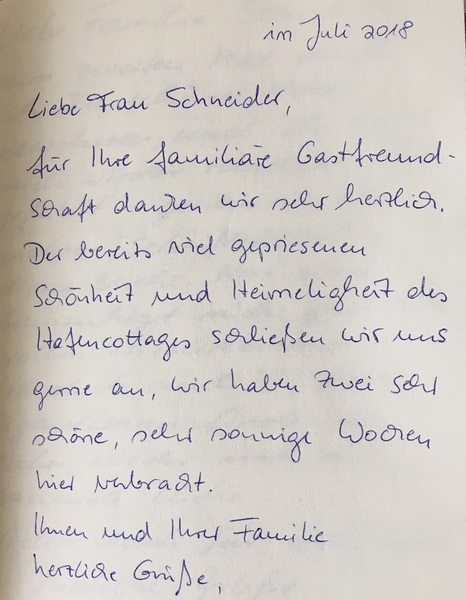 im Juli 2018
Liebe Frau Schneider,
für Ihre familiäre Gastfreund-
schaft danken wir sehr herzlich.
Der bereits viel gepriesenen
Schönheit und Heimeligkeit des
Hafencottages schließen wir uns
gerne an, wir haben zwei sehr
schöne, sehr sonnige Wochen
hier verbracht.
Ihnen und Ihrer Familie
herzliche Grüße,